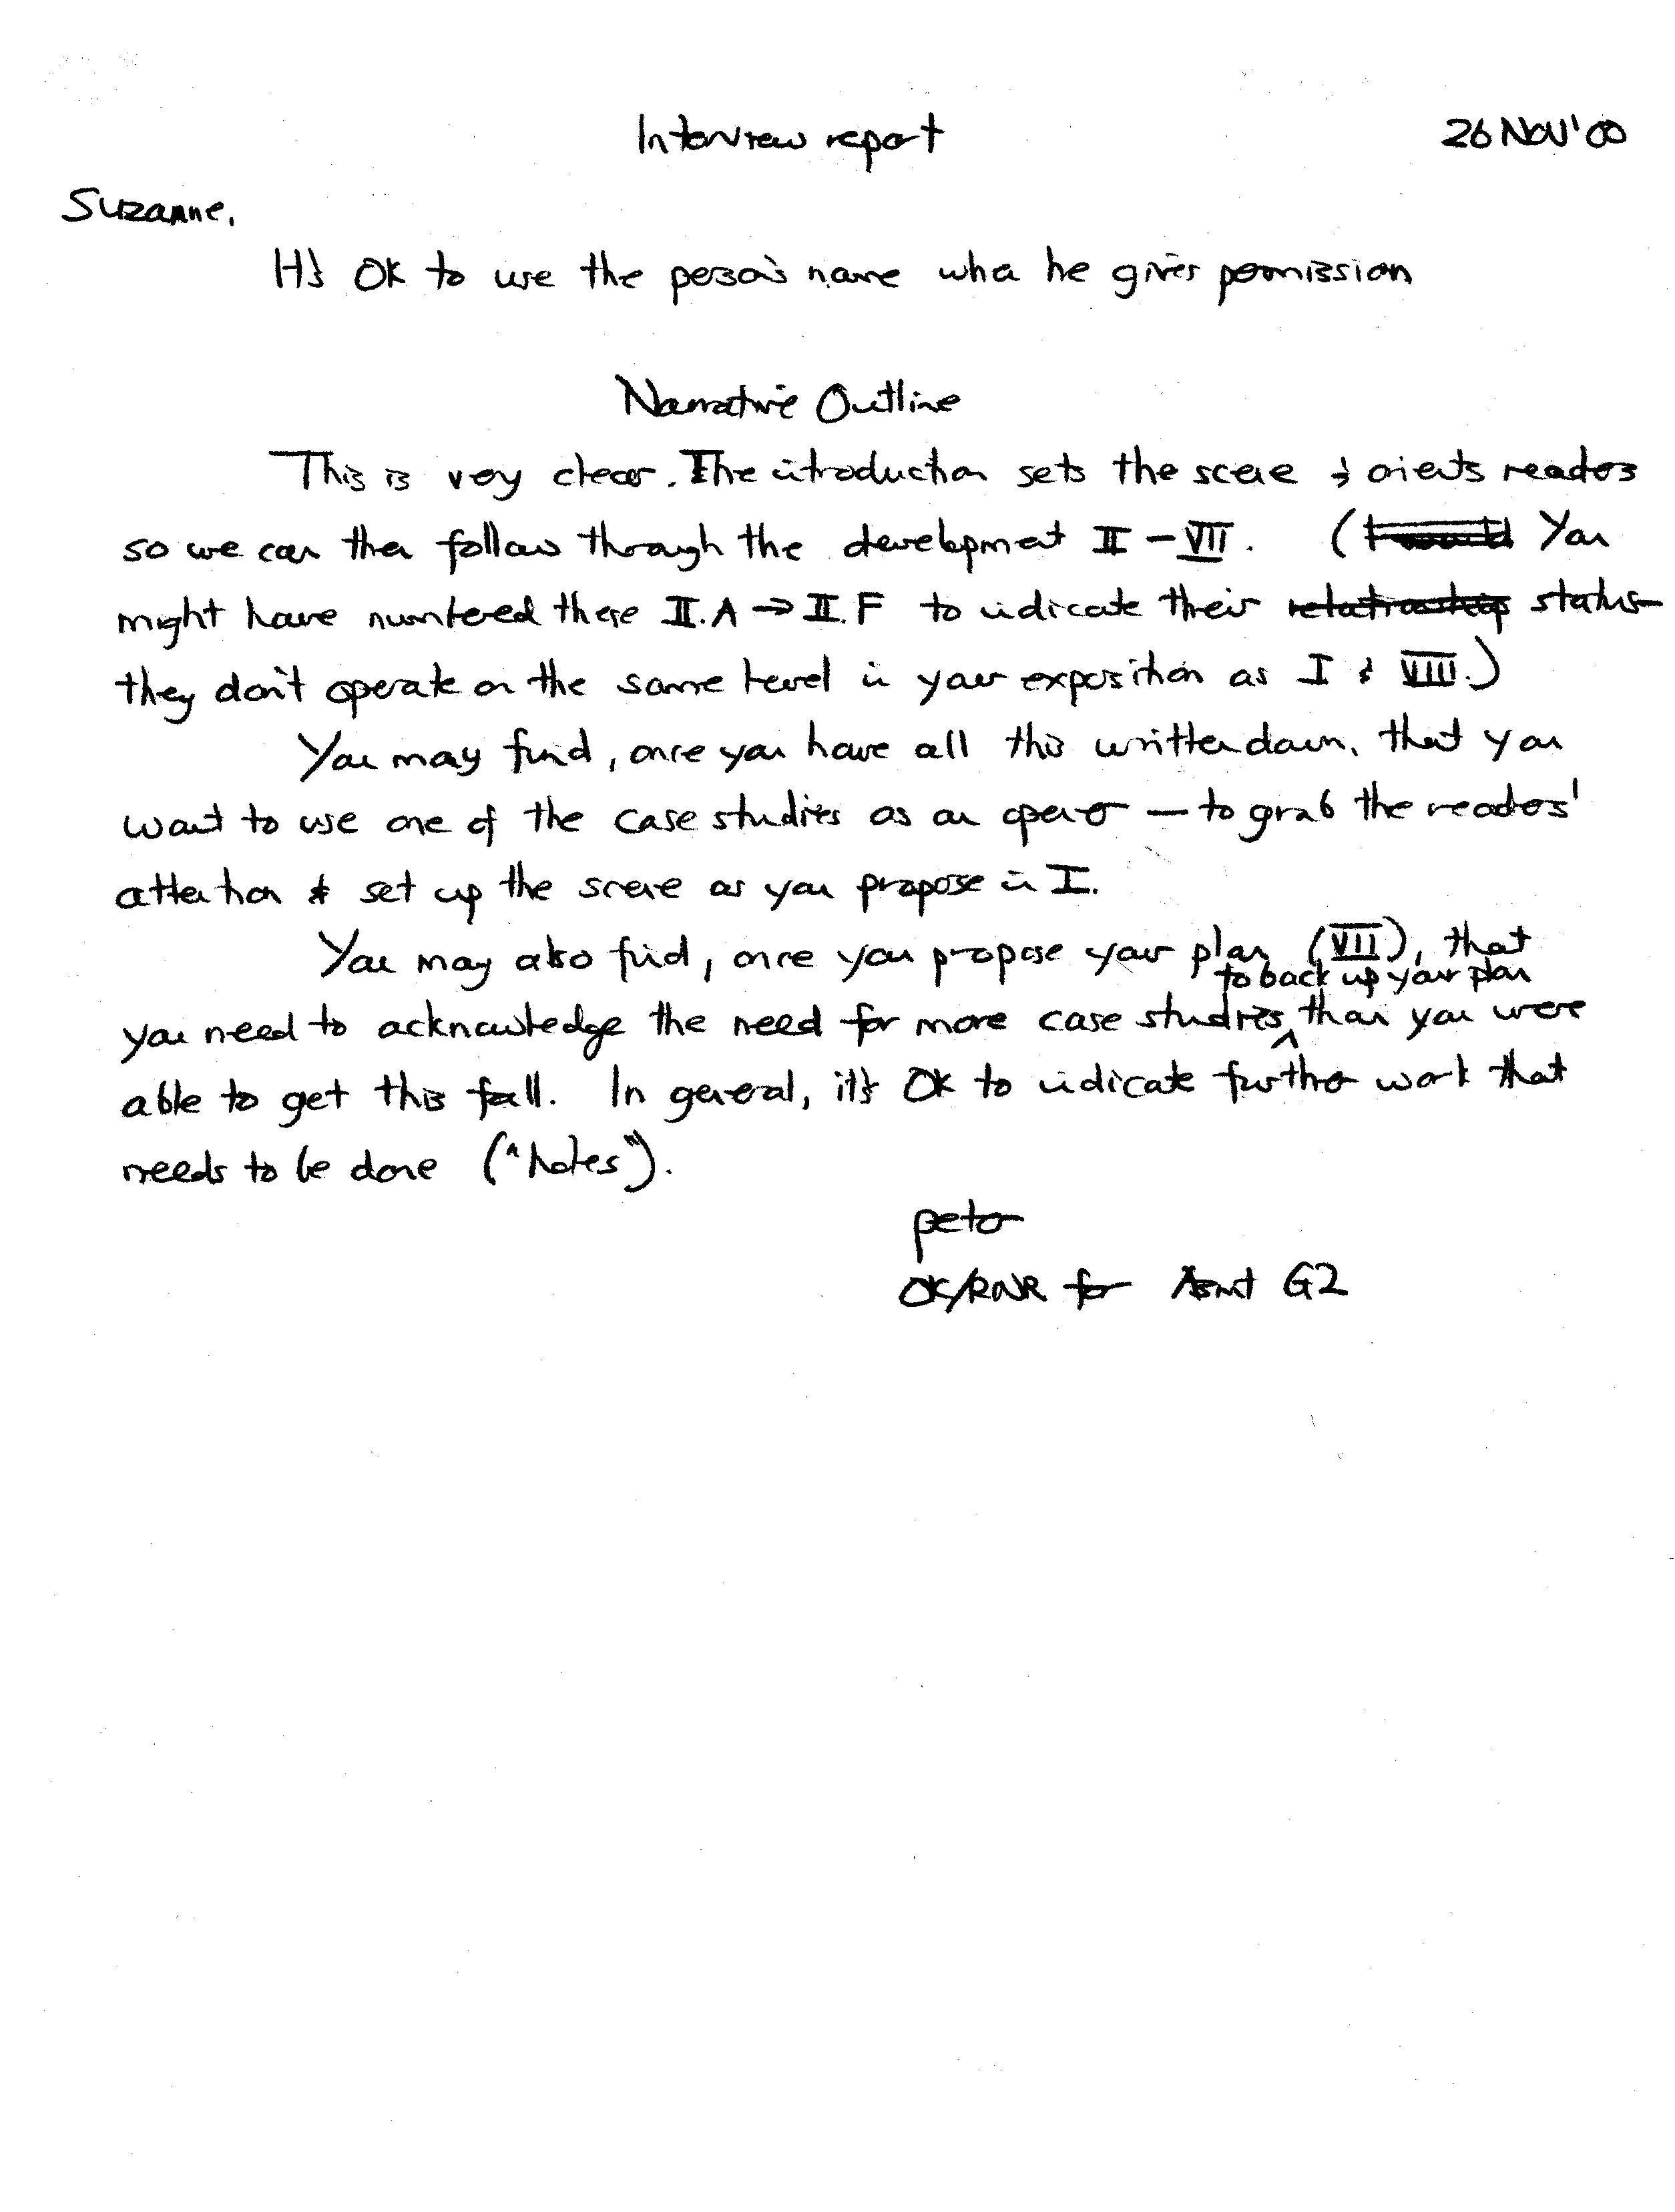 Interview report 26 Nov'00
Suzanne,
It's OK to use the person's name when he gives permission
Narrative Outline
This is very clear. The introduction sets the scene & orients readers
so we can then follow through the development II – VII. (I would You
might have numbered these II.A → II.F to indicate their relationship status–
they don't operate on the same level in your exposition as I & VIII.)
You may find, once you have all this written down, that you
want to use one of the case studies as an opener — to grab the readers'
attention & set up the scene as you propose in I.
You may also find, once you propose your plan (VII), that
to back up your plan
you need to acknowledge the need for more case studies ^ than you were
able to get this fall. In general, it's OK to indicate further work that
needs to be done ("holes").
peter
OK/RNR for Asmt G2